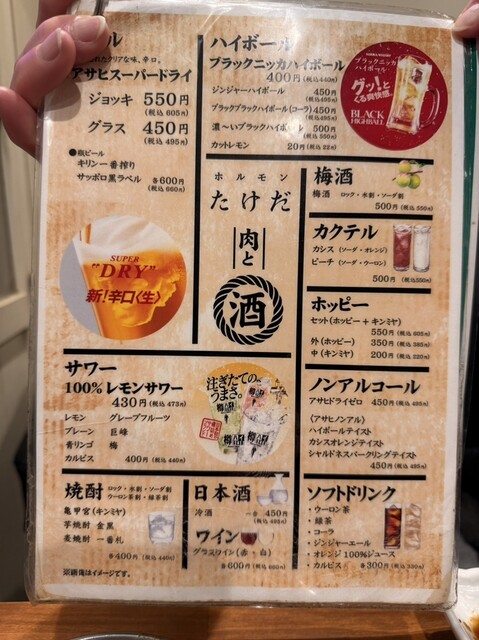 ール
れたクリアな味、辛口。
アサヒスーパードライ
ジョッキ 550円
(税込 605円)
グラス 450円
(税込 495円)
●瓶ビール
キリン一番搾り
サッポロ黒ラベル 各600円
(税込 660円)
SUPER
"DRY"
新!辛口〈生〉
ハイボール
ブラックニッカハイボール
400円(税込440円)
ジンジャーハイボール 450円
(税込495円)
ブラックブラックハイボール(コーラ) 450円
(税込495円)
濃〜いブラックハイボール 500円
(税込550円)
カットレモン 20円(税込22円)
ブラックニッカ
ハイボール
グッ!と
くる爽快感。
BLACK
HIGHBALL
ホルモン
たけだ
肉と
酒
梅酒
梅酒 ロック・水割・ソーダ割
500円(税込 550円)
カクテル
カシス(ソーダ・オレンジ)
ピーチ(ソーダ・ウーロン)
500円(税込550円)
ホッピー
セット(ホッピー+キンミヤ)
550円(税込 605円)
外(ホッピー) 350円(税込 385円)
中(キンミヤ) 200円(税込 220円)
サワー
100%レモンサワー
430円(税込 473円)
レモン グレープフルーツ
プレーン 巨峰
青リンゴ 梅
カルピス 400円(税込 440円)
注ぎたての
うまさ。
ノンアルコール
アサヒドライゼロ 450円(税込495円)
〈アサヒノンアル〉
ハイボールテイスト
カシスオレンジテイスト
シャルドネスパークリングテイスト
450円(税込 495円)
焼酎 ロック・水割・ソーダ割
ウーロン茶割・緑茶割
亀甲宮(キンミヤ)
芋焼酎 金黒
麦焼酎 一番札
各400円(税込 440円)
日本酒
冷酒 一合 450円
(税込495円)
ワイン
グラスワイン(赤・白)
各600円(税込 660円)
ソフトドリンク
・ウーロン茶
・緑茶
・コーラ
・ジンジャーエール
・オレンジ100%ジュース
・カルピス 各300円(税込 330円)
※画像はイメージです。